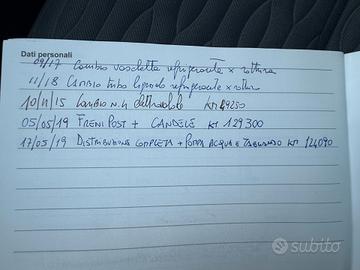 Dati personali
09/17 CAMBIO vaschetta refrigerante x rottura
11/18 CAMBIO tubo liquido refrigerante x rottura
10/11/15 CAMBIO N.4 KM
05/05/19 FRENI POST + CANDELE KM 129300
17/05/19 DISTRIBUZIONE COMPLETA + POMPA ACQUA E KM
subito